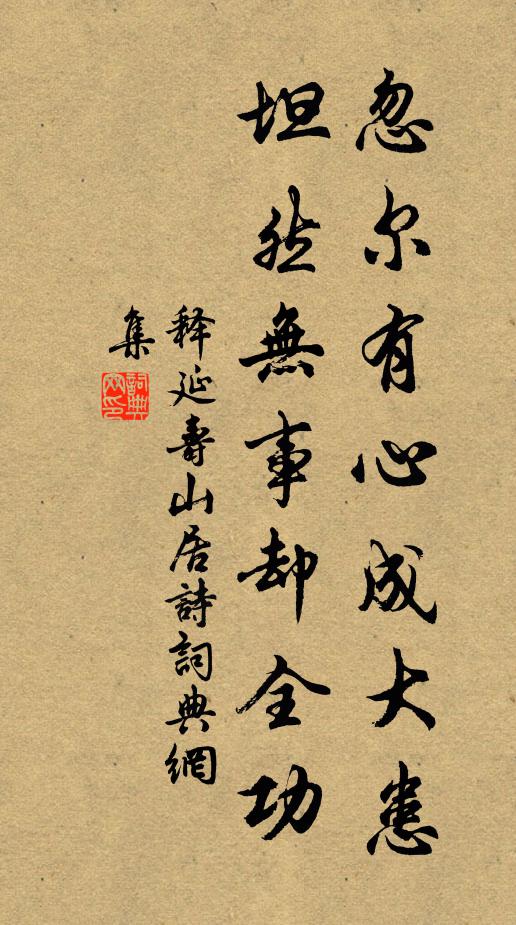 忽尔有心成大患
坦然無事却全功
释延壽山居詩詞典網
集
詞典網印